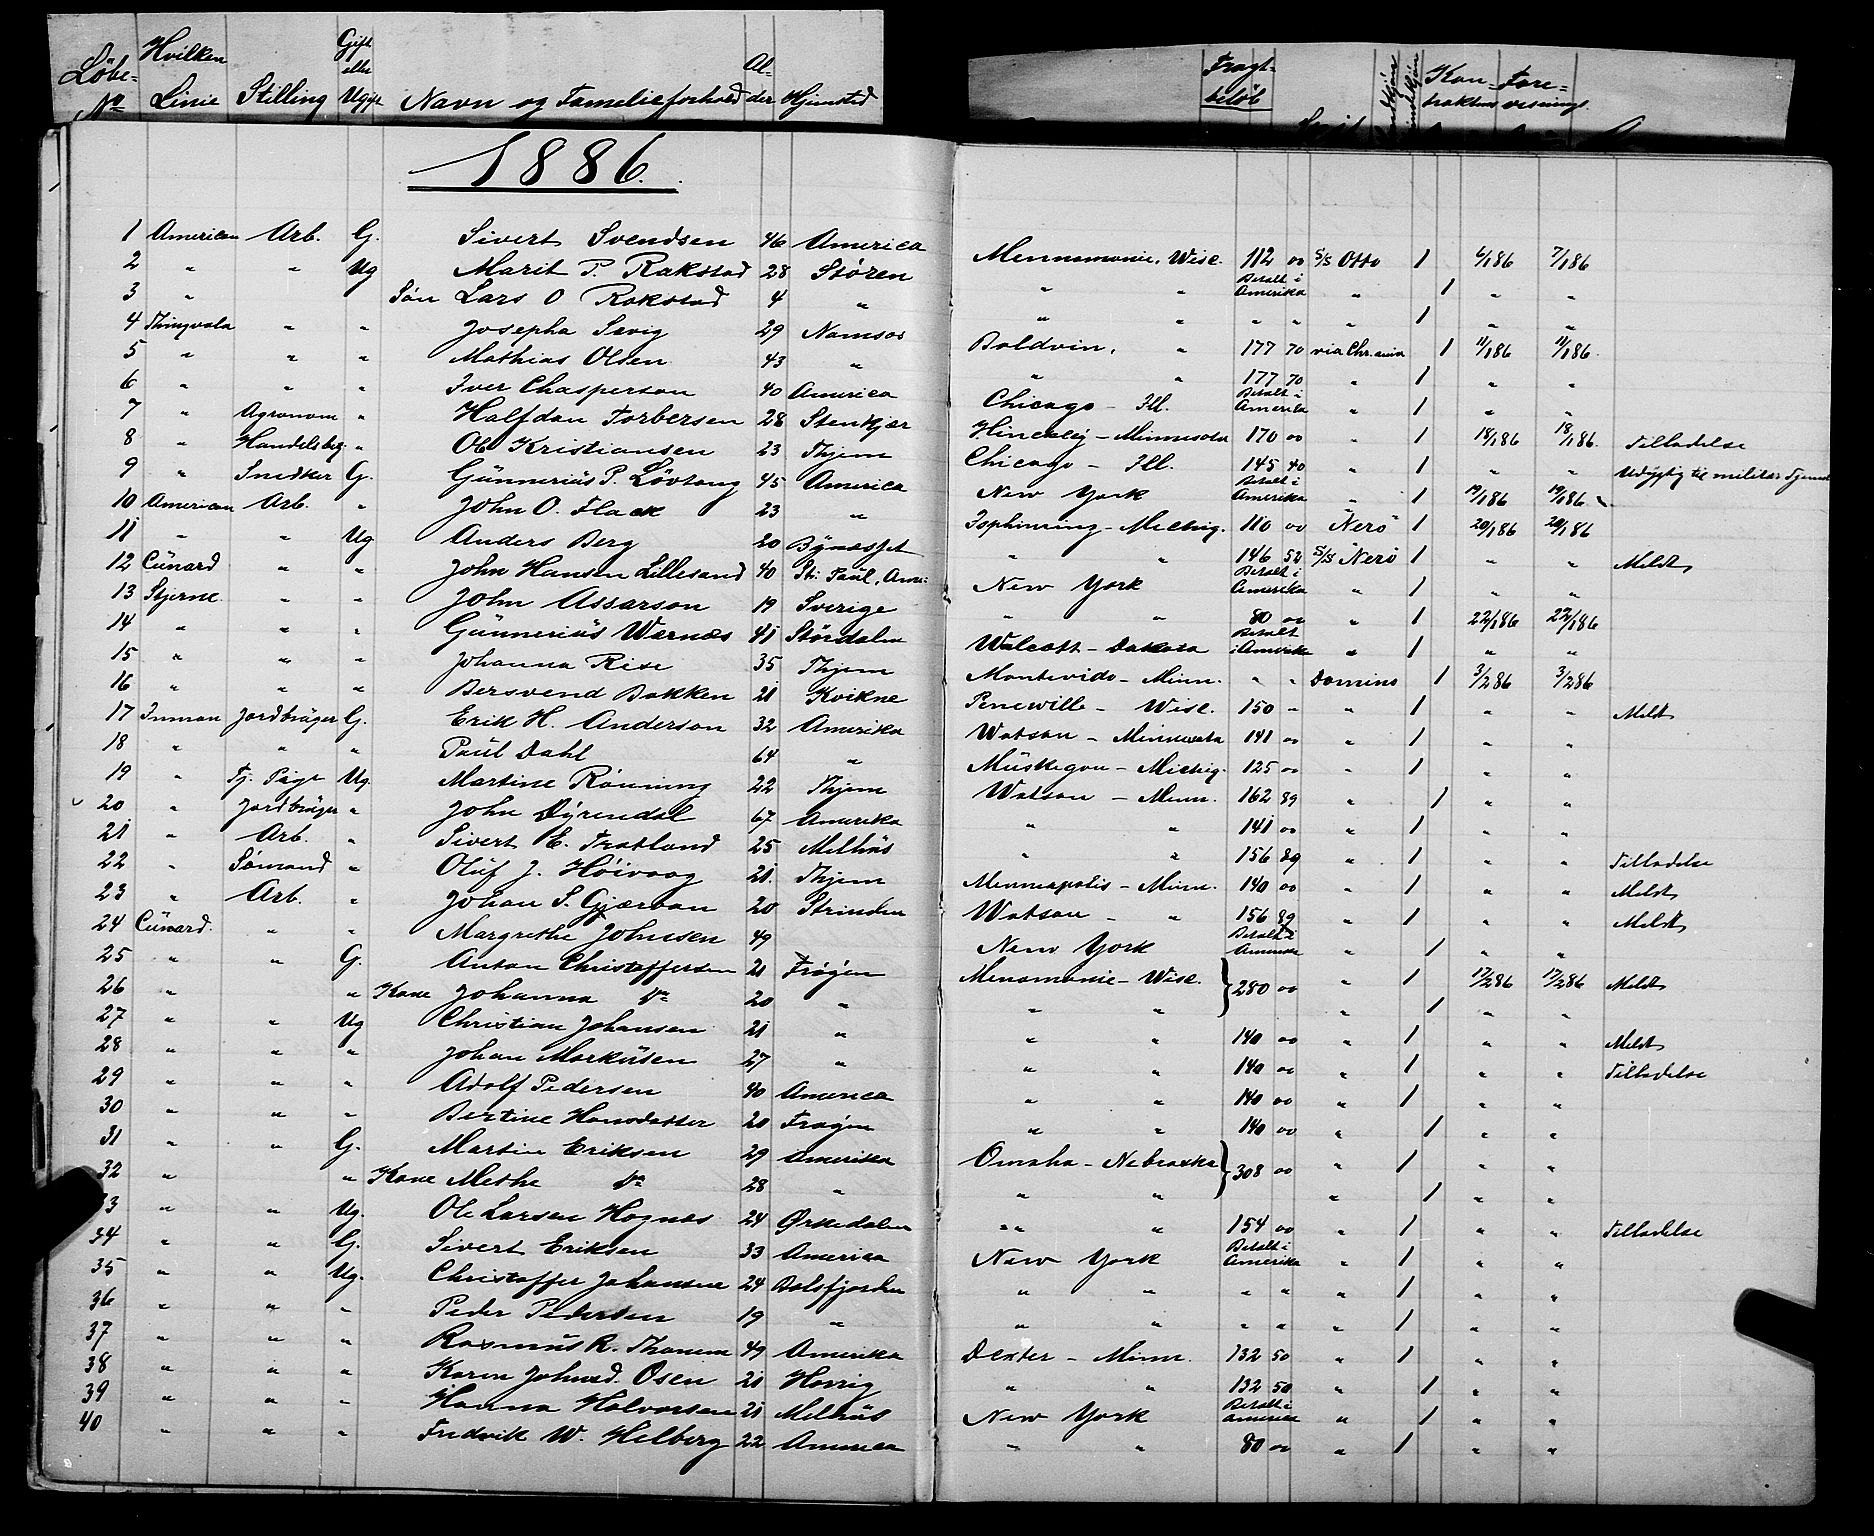 Löbe-No Hvilken Linie Stilling Gift eller Ugift Navn og Familieforhold Alder Hjemsted Fragtbelöb Kontraktens Forevisnings
1886.
1 American Arb. G. Sivert Svendsen 46 America Mennomonie, Wisc. 112 00 S/S Otto 1 6/1 86 7/1 86
2 " " Ug Marit P. Rakstad 28 Støren " " Betalt i Amerika " 1 " "
3 " Søn Lars O Rakstad 4 " " " " " " 1 " "
4 Thingvala " " Josepha Sevig 29 Namsos Baldvin, " 177 70 via Chr.ania 1 11/1 86 11/1 86
5 " " " Mathias Olsen 43 " " " 177 70 " 1 " "
6 " " " Iver Chasperson 40 America Chicago - Ill. Betalt i Amerika " 1 " "
7 " Agronom " Halfdan Torbersen 28 Stenkjær Hinckley - Minnesota 170 00 " 1 18/1 86 18/1 86 Tilladelse
8 " Handelsbetj " Ole Kristiansen 23 Thjem Chicago - Ill. 145 40 " 1 " " Udygtig til militær Tjeneste
9 " Snedker G. Günneriüs P. Løvtang 45 America New York Betalt i Amerika " 1 19/1 86 19/1 86
10 American Arb. " John O. Flack 23 " Ispheming - Michig. 110 00 "Nerö" 1 20/1 86 20/1 86
11 " " Ug Anders Berg 20 Bynæsset " " 146 52 S/S Nerö 1 " " Meldt
12 Cünard " " John Hansen Lillesand 40 St: Paul, Ame: New York Betalt i Amerika " 1 " "
13 Stjerne " " John Assarson 19 Sverige " " 80 00 " 1 22/1 86 22/1 86
14 " " " Günneriüs Wærnæs 41 Stördalen Walcott - Dakota Betalt i Amerika " 1 " "
15 " " " Johanna Rise 35 Thjem Montevido - Minn. " " Domino 1 3/2 86 3/2 86
16 " " " Bersvend Bakken 21 Kvikne Penewille - Wisc. 150 " " 1 " " Meldt
17 Inman Jordbrüger G. Erik H. Anderson 32 Amerika Watson - Minnesota 141 00 " 1 " "
18 " " " Paül Dahl 64 " Müskegon - Michig. 125 00 " 1 " "
19 " Tj. Pige Ug. Martine Rönning 22 Thjem Watson - Minn. 162 89 " 1 " "
20 " Jordbrüger " John Dÿrendal 67 Amerika " " 141 00 " 1 " "
21 " Arb. " Sivert E. Fratland 25 Melhüs " " 156 89 " 1 " " Tilladelse
22 " Sömand " Olüf J. Höivaag 21. Thjem Minneapolis - Minn. 140 00 " 1 " " Meldt
23 " Arb. " Johan S. Gjærvan 20 Strinden Watson - " 156 89 " 1 " " Meldt
24 Cünard. " " Margrethe Johnsen 49 New York Betalt i Amerika " 1 " "
25 " " G. Anton Christoffersen 21 Frøyen Menomonie - Wisc. 280 00 " 1 17/2 86 17/2 86 Meldt
26 " " Kone Johanna Do 20 " " " " 1 " "
27 " " Ug Christian Johansen 21 " " " 140 00 " 1 " " Meldt
28 " " " Johan Marküsen 27 " " " 140 00 " 1 " " Tilladelse
29 " " " Adolf Pedersen 40 America " " 140 00 " 1 " "
30 " " " Bertine Hansdatter 20 Frøyen " " 140 00 " 1 " "
31 " " G. Martin Eriksen 29 Amerika Omaha - Nebraska 308 00 " 1 " "
32 " " Kone Methe Do 28 " " " " 1 " "
33 " " Ug. Ole Larsen Hognes 24 Ørkedalen " " " 154 00 " 1 " " Tilladelse
34 " " G. Sivert Eriksen 33 America New York Betalt i Amerika " 1 " "
35 " " Ug. Christoffer Johansen 24 Balsfjorden " " " " " 1 " "
36 " " " Peder Pedersen 19 " " " " " " 1 " "
37 " " " Rasmüs R. Thanem 49 Amerika Dexter - Minn. 132 50 " 1 " "
38 " " " Karen Johnsd. Osen 21 Horrig " " 132 50 " 1 " "
39 " " " Hanna Halvorsen 21 Melhüs New York Betalt i Amerika " 1 " "
40 " " " Fredrik W. Hilberg 22 America " " 80 00 " 1 " "